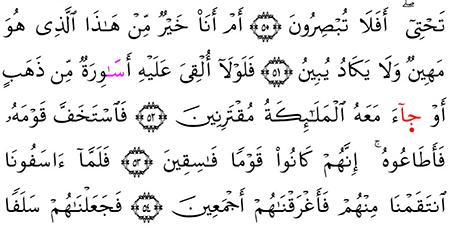 تَحْتِىٓ ۖ أَفَلَا تُبْصِرُونَ ٥١ أَمْ أَنَا۠ خَيْرٌ مِّنْ هَـٰذَا ٱلَّذِى هُوَ
مَهِينٌ وَلَا يَكَادُ يُبِينُ ٥٢ فَلَوْلَآ أُلْقِىَ عَلَيْهِ أَسَـٰوِرَةٌ مِّن ذَهَبٍ
أَوْ جَآءَ مَعَهُ ٱلْمَلَـٰٓئِكَةُ مُقْتَرِنِينَ ٥٣ فَٱسْتَخَفَّ قَوْمَهُۥ
فَأَطَاعُوهُ ۚ إِنَّهُمْ كَانُوا۟ قَوْمًا فَـٰسِقِينَ ٥٣ فَلَمَّآ ءَاسَفُونَا
ٱنتَقَمْنَا مِنْهُمْ فَأَغْرَقْنَـٰهُمْ أَجْمَعِينَ ٥٤ فَجَعَلْنَـٰهُمْ سَلَفًا